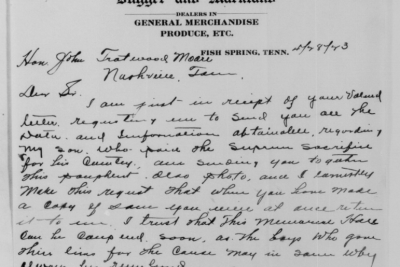 DEALERS IN
GENERAL MERCHANDISE
PRODUCE, ETC.
FISH SPRING, TENN. 4/28/23
Hon. John Trotwood Moore
Nashville, Tenn
Dear Sir.
I am just in receipt of your valued
letter requesting me to send you all the
Data and Information obtainable, regarding
my son, who paid the Supreme Sacrifice
for his Country, am sending you
this pamphlet. Also photo, and I earnestly
make this request that when you have made
a copy of same you will at once return
it to me. I trust that this Memorial
can be completed soon, as the boys who gave
their lives for the cause may in some way